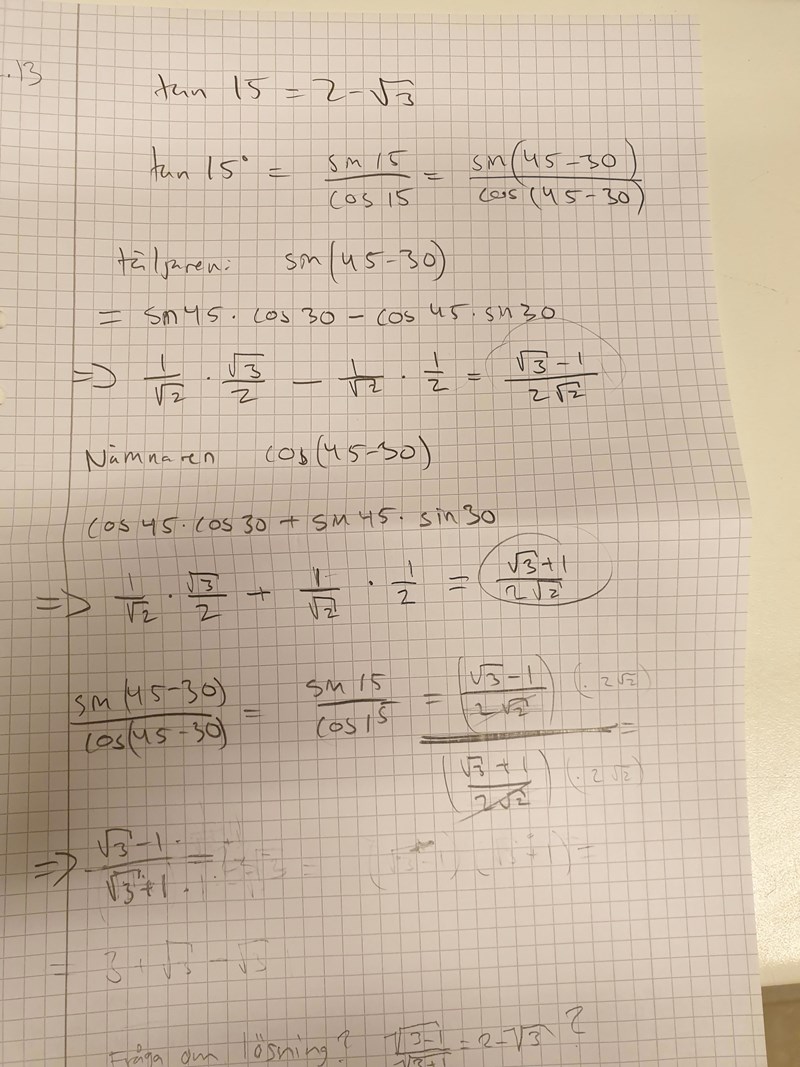 .13
tan 15 = 2-√3
tan 15° = sin 15 / cos 15 = sin(45-30) / cos(45-30)
täljaren: sin(45-30)
= sin45 · cos 30 - cos 45 · sin 30
=> 1/√2 · √3/2 - 1/√2 · 1/2 = (√3-1)/(2√2)
Nämnaren cos(45-30)
cos 45 · cos 30 + sin 45 · sin 30
=> 1/√2 · √3/2 + 1/√2 · 1/2 = (√3+1)/(2√2)
sin(45-30) / cos(45-30) = sin 15 / cos 15 = ((√3-1)/(2√2)) (· 2√2) / ((√3+1)/(2√2)) (· 2√2) =
=> (√3-1)/(√3+1) =
= 3 + √3 - √3
Fråga om lösning? √3-1 / √3+1 = 2-√3 ?